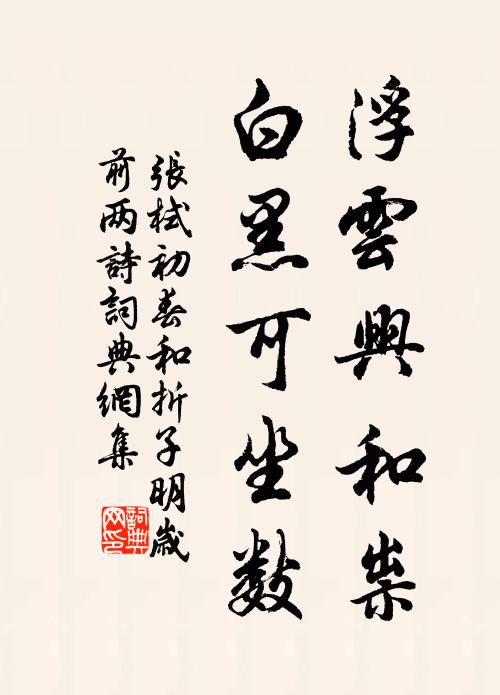 浮雲興和祟
白黑可坐數
張栻初春和折子明歲
前两詩詞典網集
詞典
网印